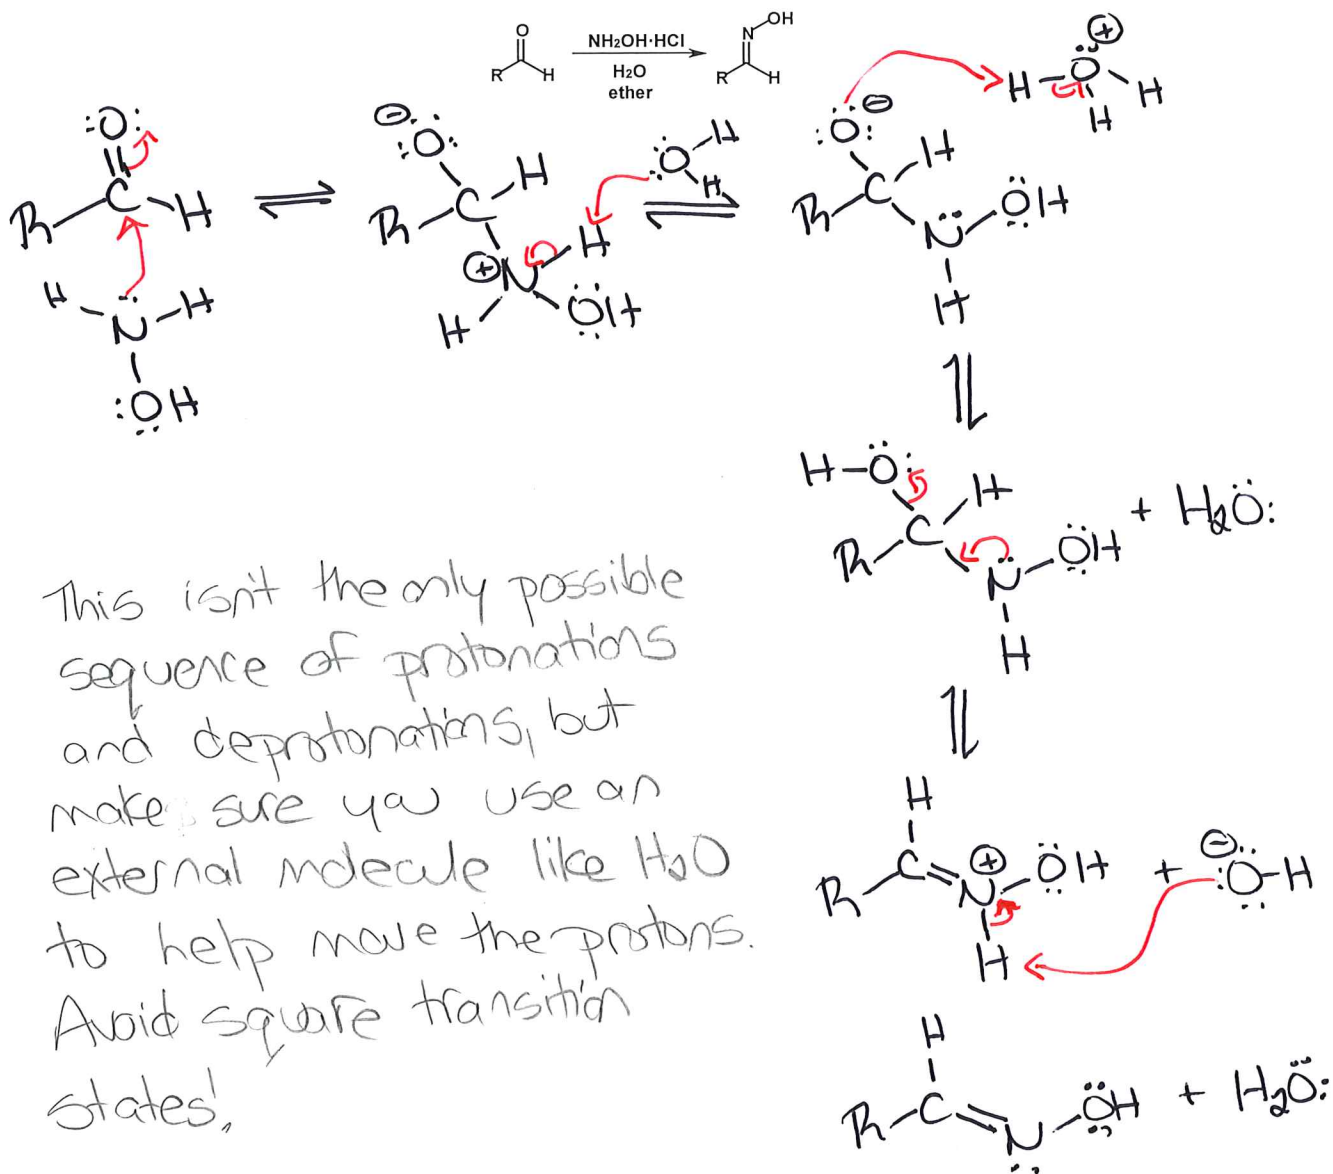 O
R H
NH₂OH·HCl
H₂O
ether
N OH
R H
:O:
R C H
H N H
:ÖH
⊖ :O:
R C H
⊕ N H
H ÖH
O H
H
⊖ :O:
R C H
N ÖH
H
H O ⊕ H
H
H-Ö:
R C H
N ÖH
H
+ H₂Ö:
H
R C=N ⊕ ÖH
H
+ ⊖ :O-H
H
R C=N ÖH + H₂Ö:
This isn't the only possible
sequence of protonations
and deprotonations, but
make sure you use an
external molecule like H₂O
to help move the protons.
Avoid square transition
states!